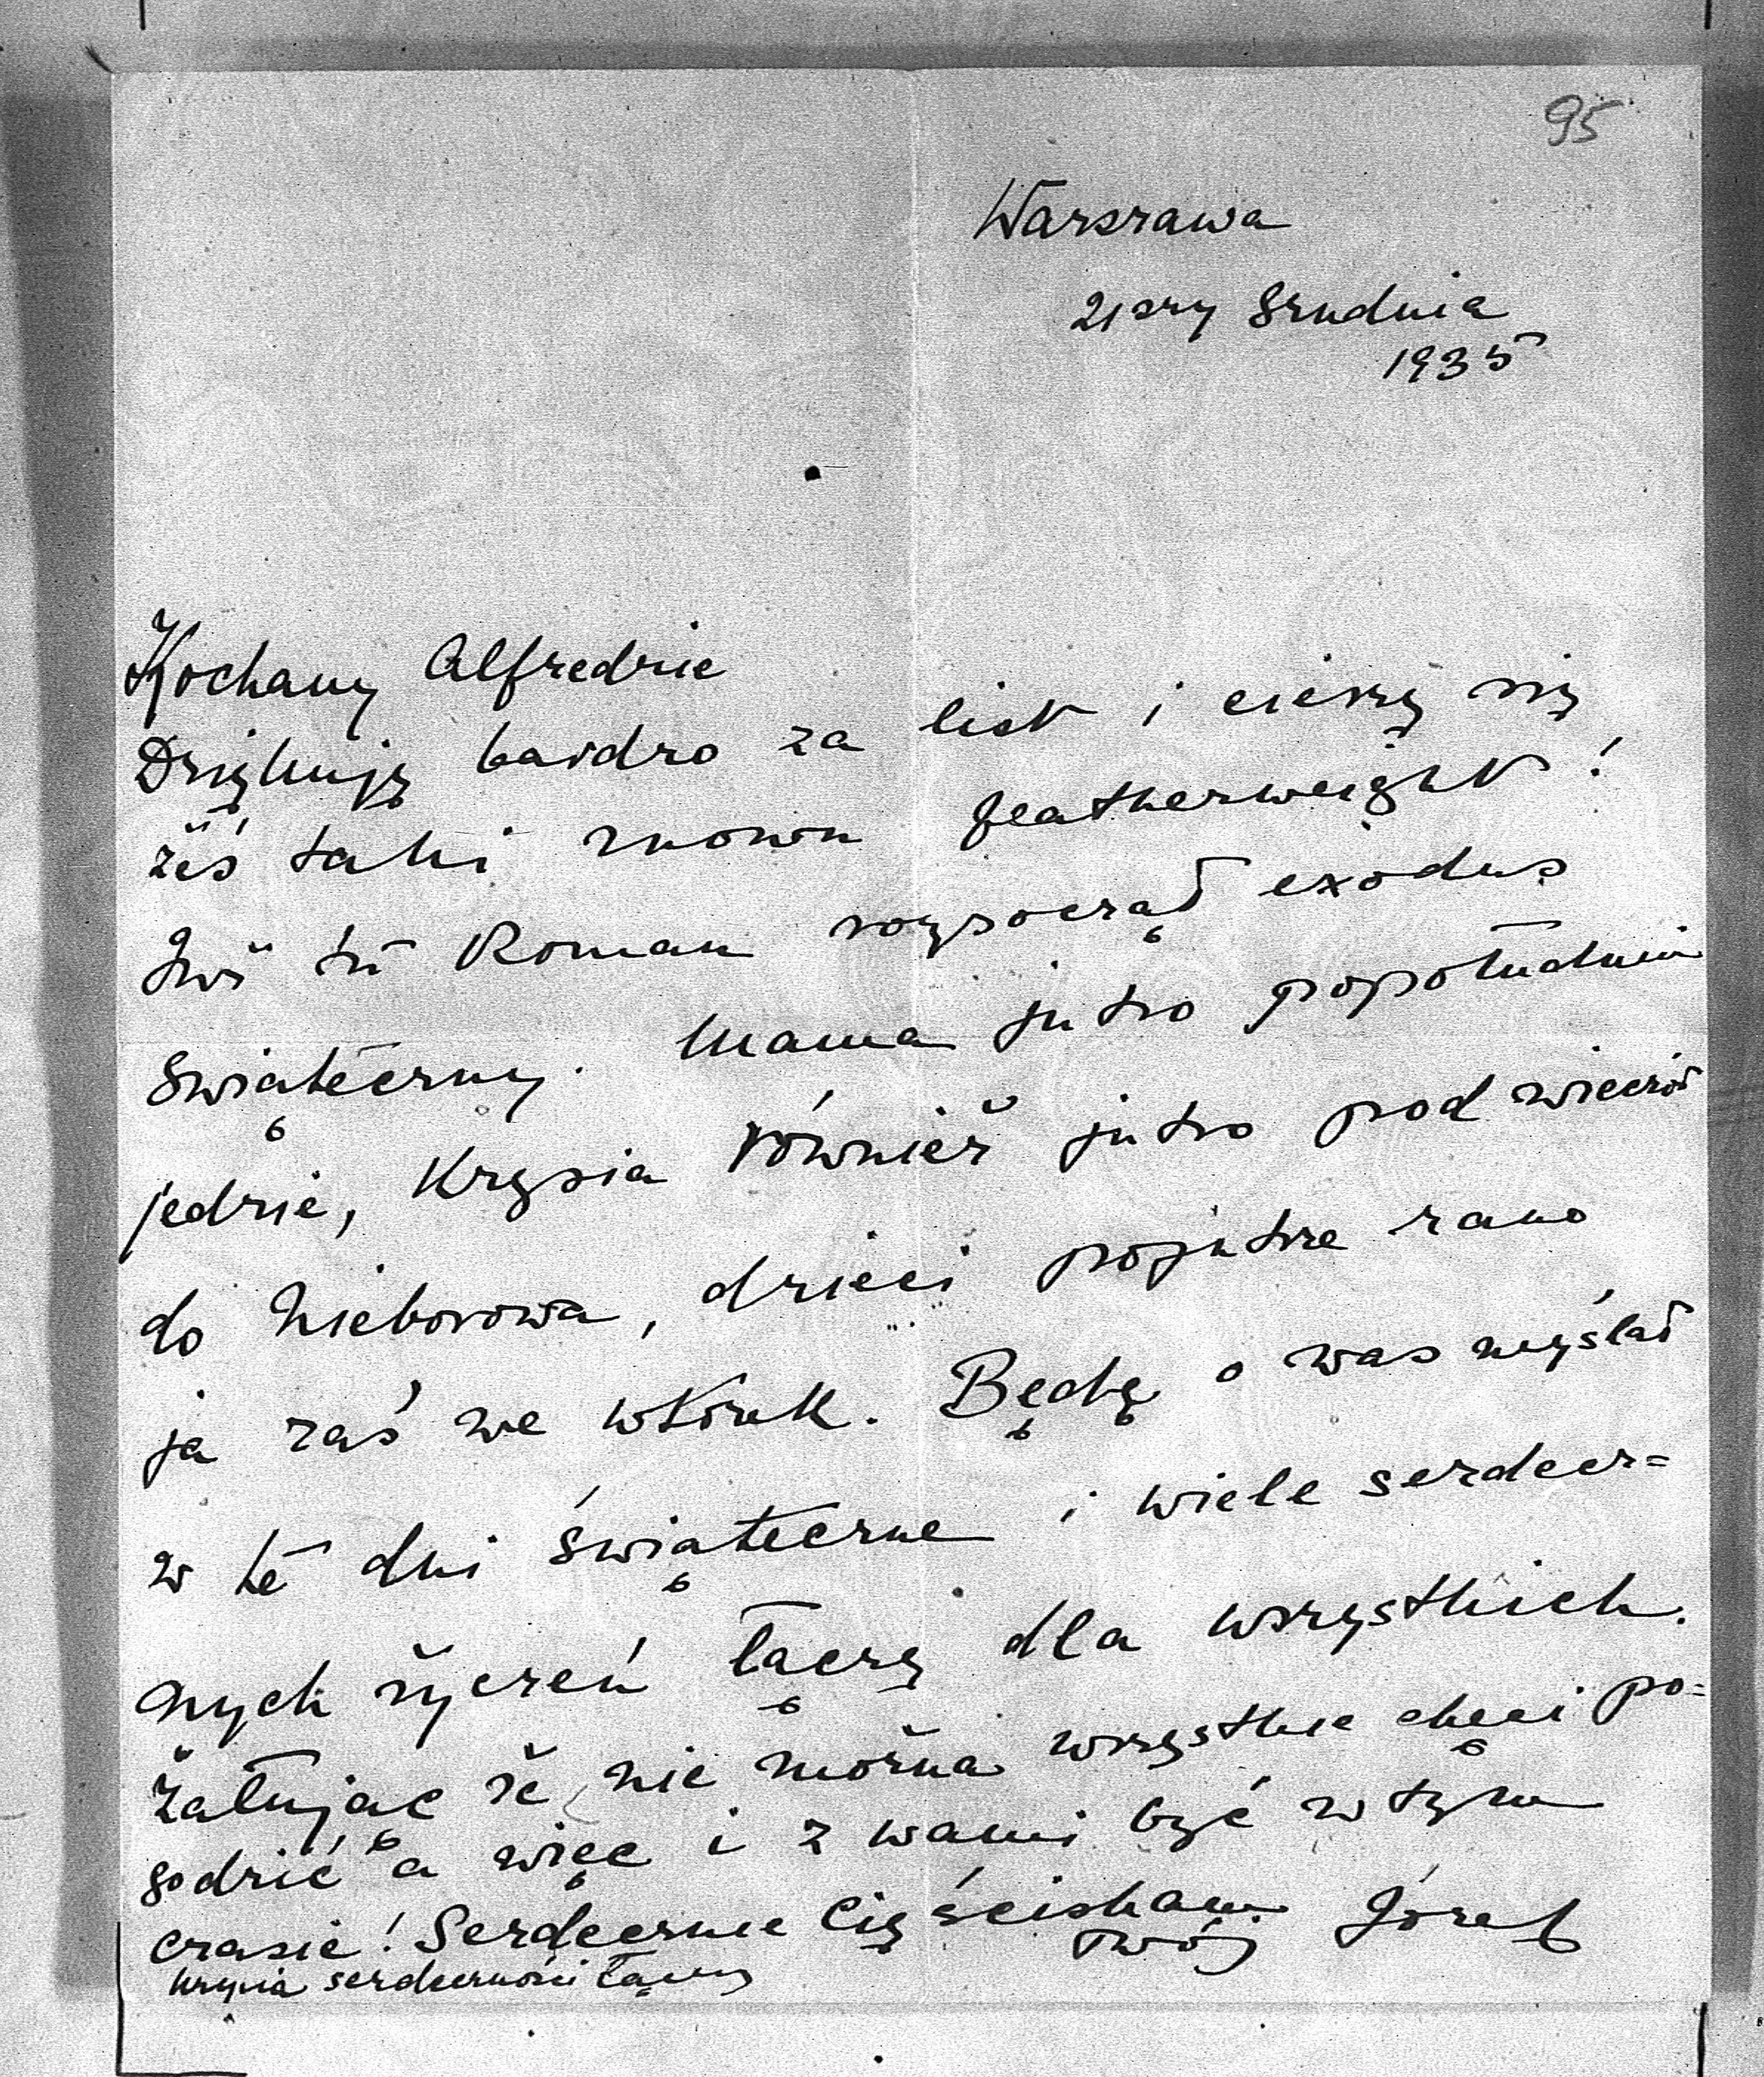 95
Warszawa
21szy Grudnia
1935
Kochany Alfredzie
Dziękuję bardzo za list i cieszę się
żeś taki znowu featherweight!
Już tu Roman rozpoczął exodus
świąteczny. Mama jutro popołudniu
jedzie, Krysia również jutro pod wieczór
do Nieborowa, dzieci pojutrze rano
ja zaś we wtorek. Będę o was myślał
w te dni świąteczne i wiele serdecz=
nych życzeń łączę dla wszystkich.
Żałując że nie można wszystkie chęci po=
godzić a więc i z wami być w tym
czasie! Serdecznie Cię ściskam Twój Józef
Krysia serdeczności łączy